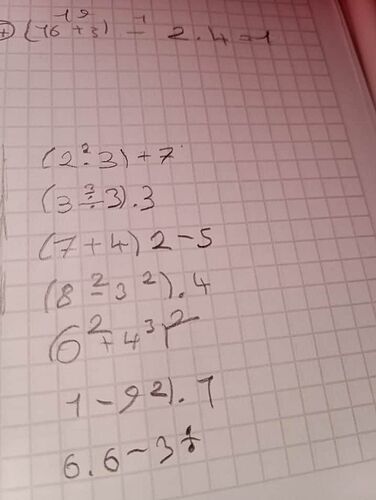 (16 + 3) - 2 . 4 = 1
(2² . 3) + 7
(3³ ÷ 3) . 3
(7 + 4) 2 - 5
(8² - 3²) . 4
(6² + 4³)²
1 - 9²) . 7
6 . 6 - 3